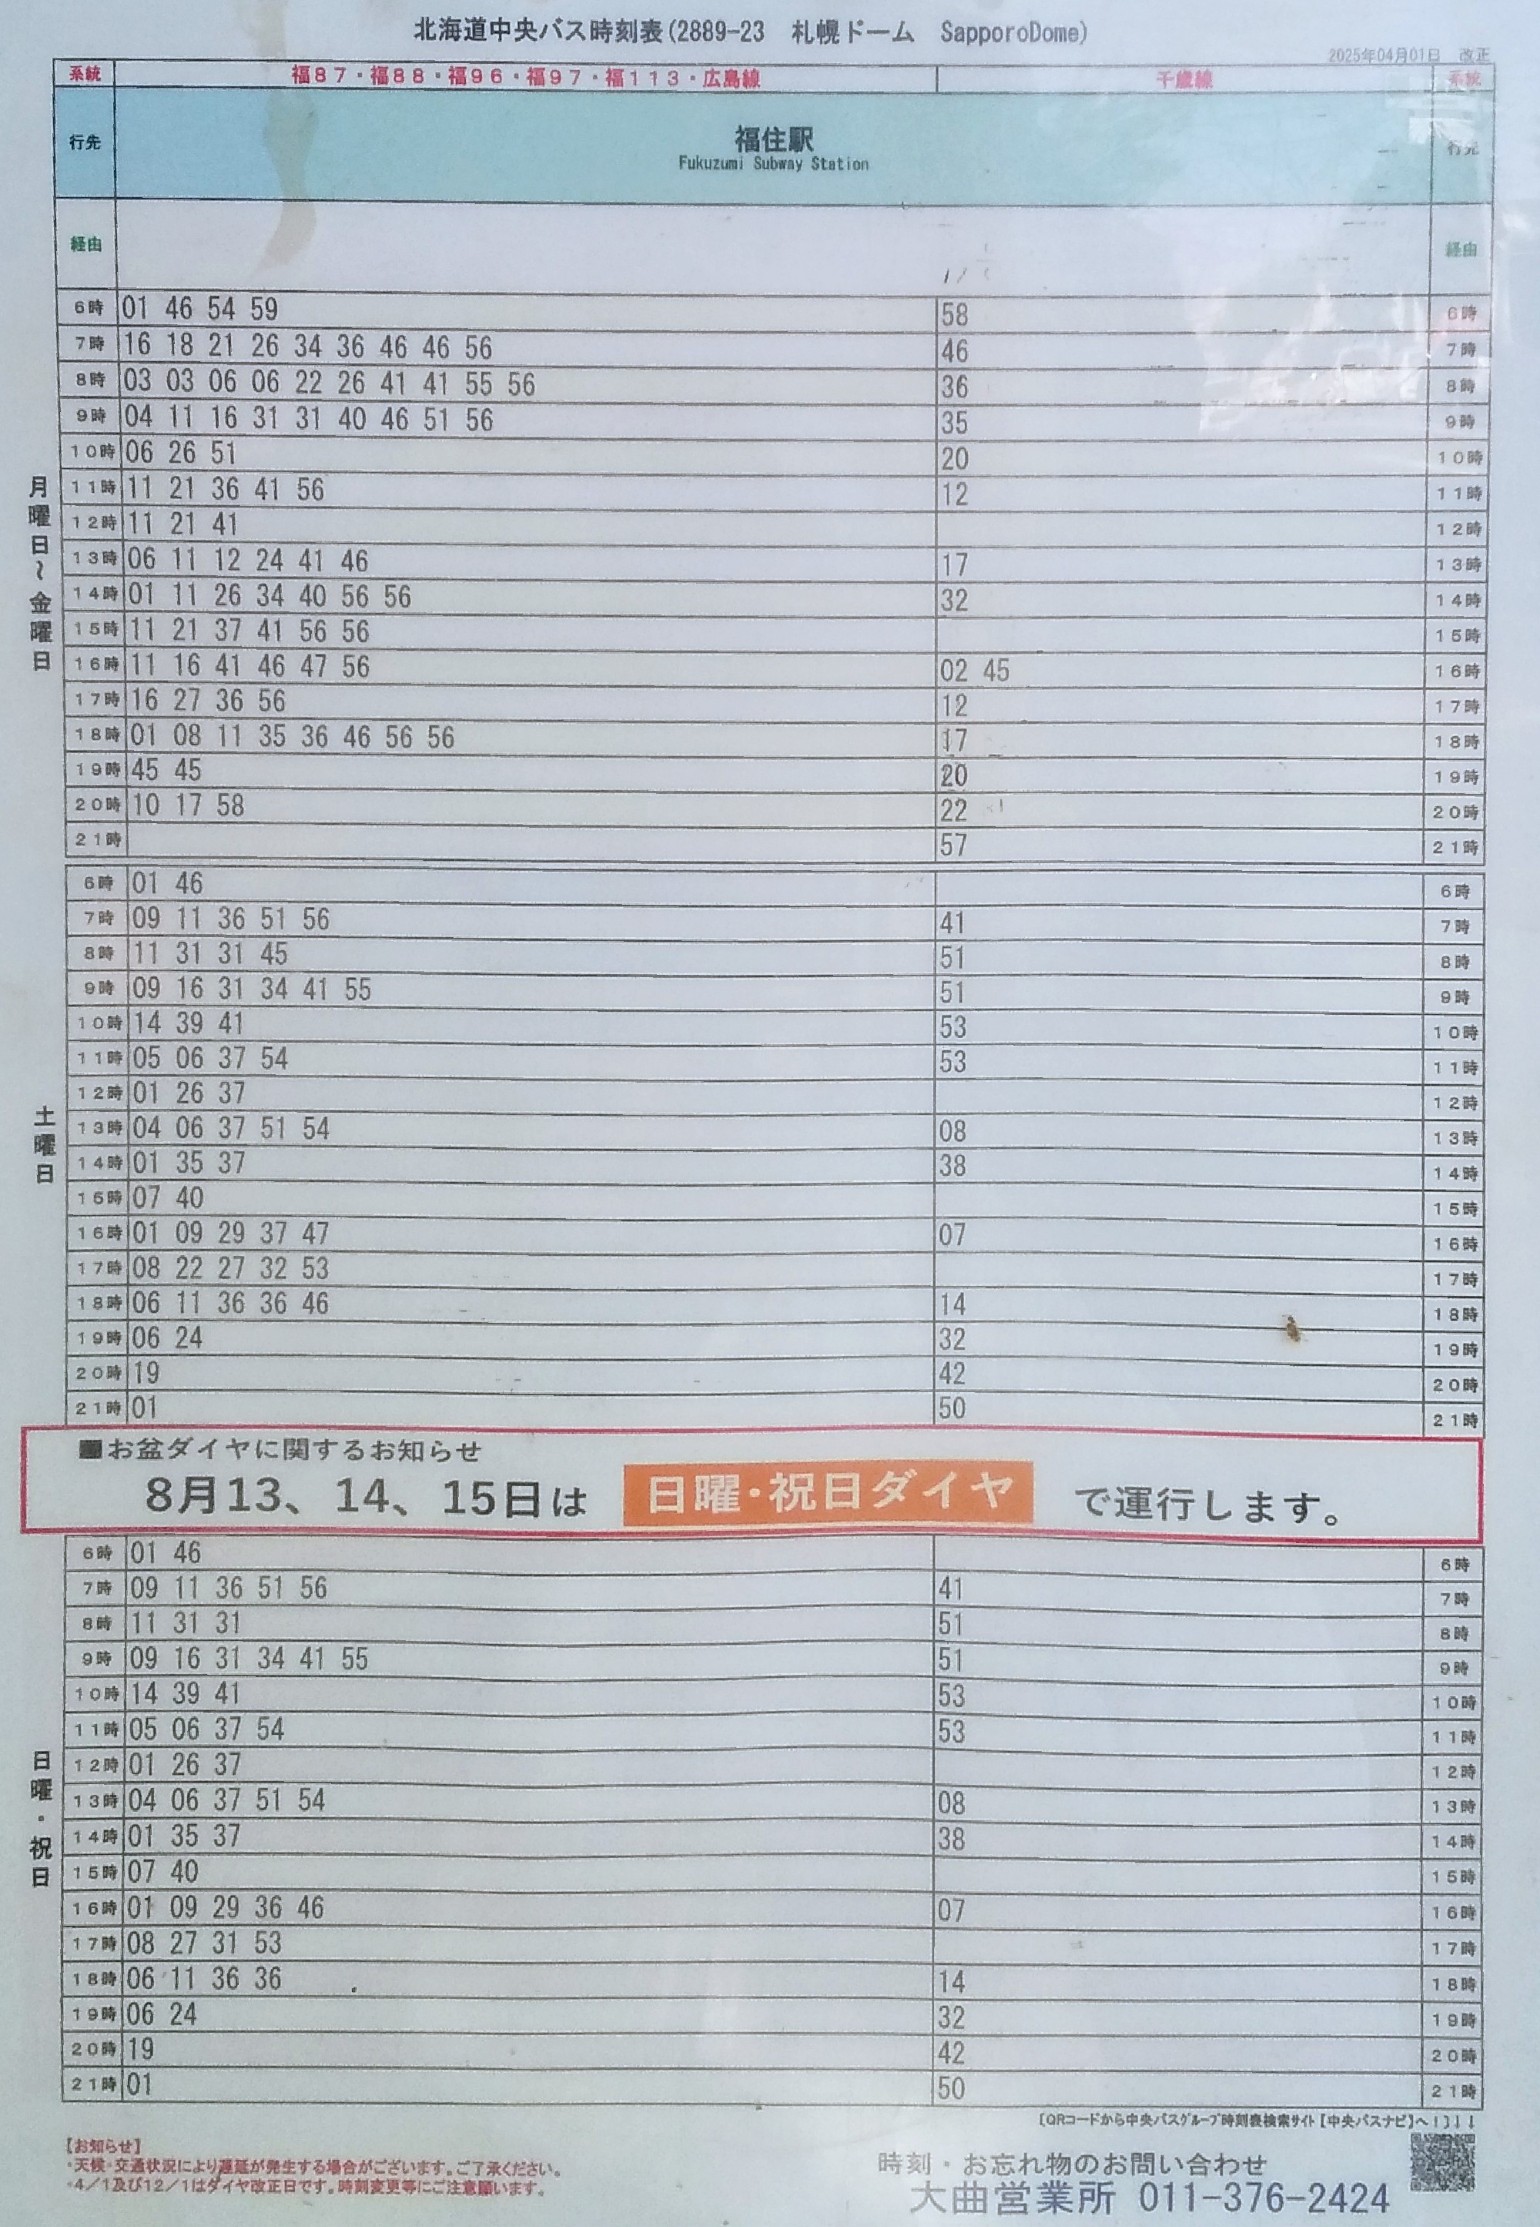 北海道中央バス時刻表(2889-23　札幌ドーム　SapporoDome)
2025年04月01日　改正
系統 福87・福88・福96・福97・福113・広島線 千歳線 系統
行先 福住駅 行先
Fukuzumi Subway Station
経由 経由
月曜日～金曜日
6時 01 46 54 59 58 6時
7時 16 18 21 26 34 36 46 46 56 46 7時
8時 03 03 06 06 22 26 41 41 55 56 36 8時
9時 04 11 16 31 31 40 46 51 56 35 9時
10時 06 26 51 20 10時
11時 11 21 36 41 56 12 11時
12時 11 21 41 12時
13時 06 11 12 24 41 46 17 13時
14時 01 11 26 34 40 56 56 32 14時
15時 11 21 37 41 56 56 15時
16時 11 16 41 46 47 56 02 45 16時
17時 16 27 36 56 12 17時
18時 01 08 11 35 36 46 56 56 17 18時
19時 45 45 20 19時
20時 10 17 58 22 20時
21時 57 21時
土曜日
6時 01 46 6時
7時 09 11 36 51 56 41 7時
8時 11 31 31 45 51 8時
9時 09 16 31 34 41 55 51 9時
10時 14 39 41 53 10時
11時 05 06 37 54 53 11時
12時 01 26 37 12時
13時 04 06 37 51 54 08 13時
14時 01 35 37 38 14時
15時 07 40 15時
16時 01 09 29 37 47 07 16時
17時 08 22 27 32 53 17時
18時 06 11 36 36 46 14 18時
19時 06 24 32 19時
20時 19 42 20時
21時 01 50 21時
■お盆ダイヤに関するお知らせ
8月13、14、15日は 日曜・祝日ダイヤ で運行します。
日曜・祝日
6時 01 46 6時
7時 09 11 36 51 56 41 7時
8時 11 31 31 51 8時
9時 09 16 31 34 41 55 51 9時
10時 14 39 41 53 10時
11時 05 06 37 54 53 11時
12時 01 26 37 12時
13時 04 06 37 51 54 08 13時
14時 01 35 37 38 14時
15時 07 40 15時
16時 01 09 29 36 46 07 16時
17時 08 27 31 53 17時
18時 06 11 36 36 14 18時
19時 06 24 32 19時
20時 19 42 20時
21時 01 50 21時
〔QRコードから中央バスグループ時刻表検索サイト【中央バスナビ】へ！〕↓↓
【お知らせ】
・天候・交通状況により遅延が発生する場合がございます。ご了承ください。
・4/1及び12/1はダイヤ改正日です。時刻変更等にご注意願います。
時刻・お忘れ物のお問い合わせ
大曲営業所 011-376-2424